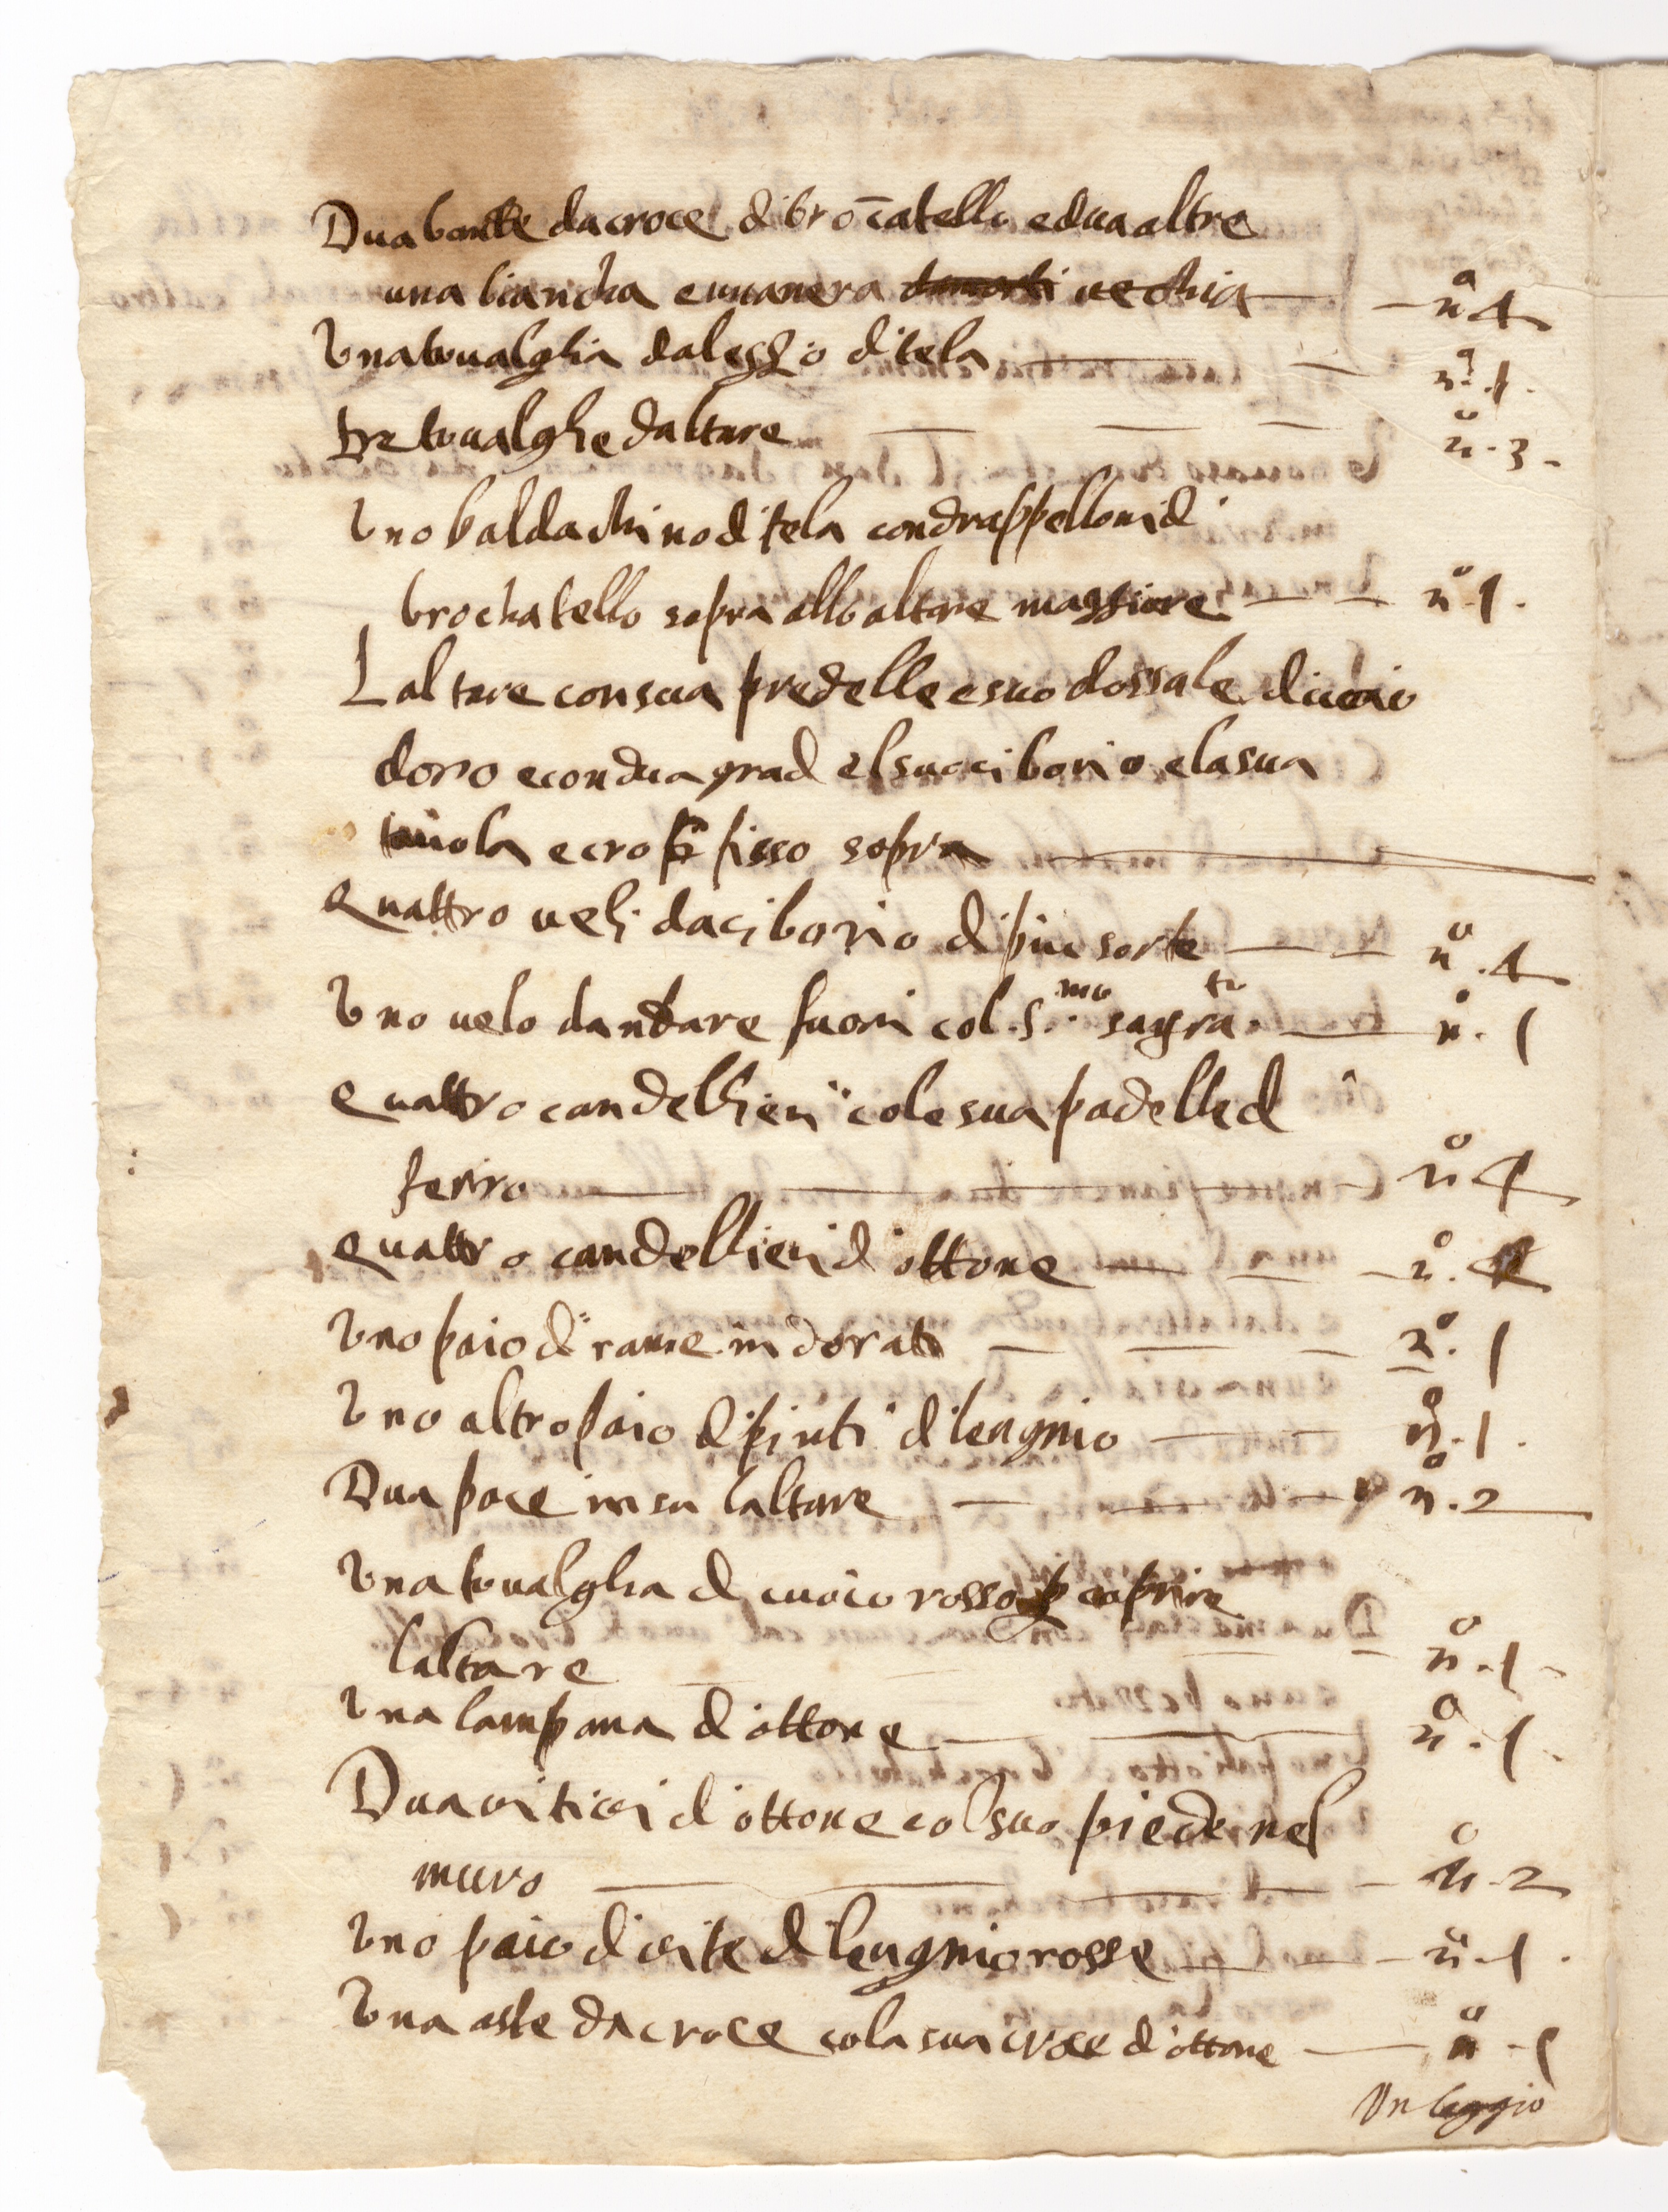 Dua bande da croce di brocatello e dua altre
una biancha e una nera vechia nº 4
Una tovalghia da leggio di tela nº 1
tre tovalghe daltare nº 3
Uno baldachino di tela con drappelloni di
brochatello sopra allo altare maggiore nº 1
Laltare con sua predelle e suo dossale di cuoio
doro e con dua grad el suo ciborio e la sua
tavola e crocifisso sopra
Quattro veli da ciborio di piu sorte nº 4
Uno velo dandare fuori col S.mo sagra.to nº 1
Quattro candellieri cole sua padelle di
ferro nº 4
Quattro candellieri d'ottone nº 4
Uno paio di rame indorato nº 1
Uno altro paio dipinti di lengnio nº 1
Dua pace in su laltare nº 2
Una tovalghia di cuoio rosso p coprire
laltare nº 1
Una lampana d'ottone nº 1
Dua viticci d'ottone col suo piede nel
muro nº 2
Uno paio di vite di lengnio rosse nº 1
Una aste da croce cola sua croce d'ottone nº 1
Un leggio